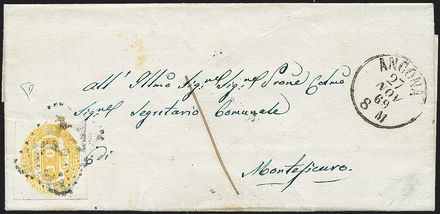 ANCONA
27
NOV
69
8 M
all' Illmo Sigre Sigre Prone Colmo
Sigre Segretario Comunale
di
Montesicuro.